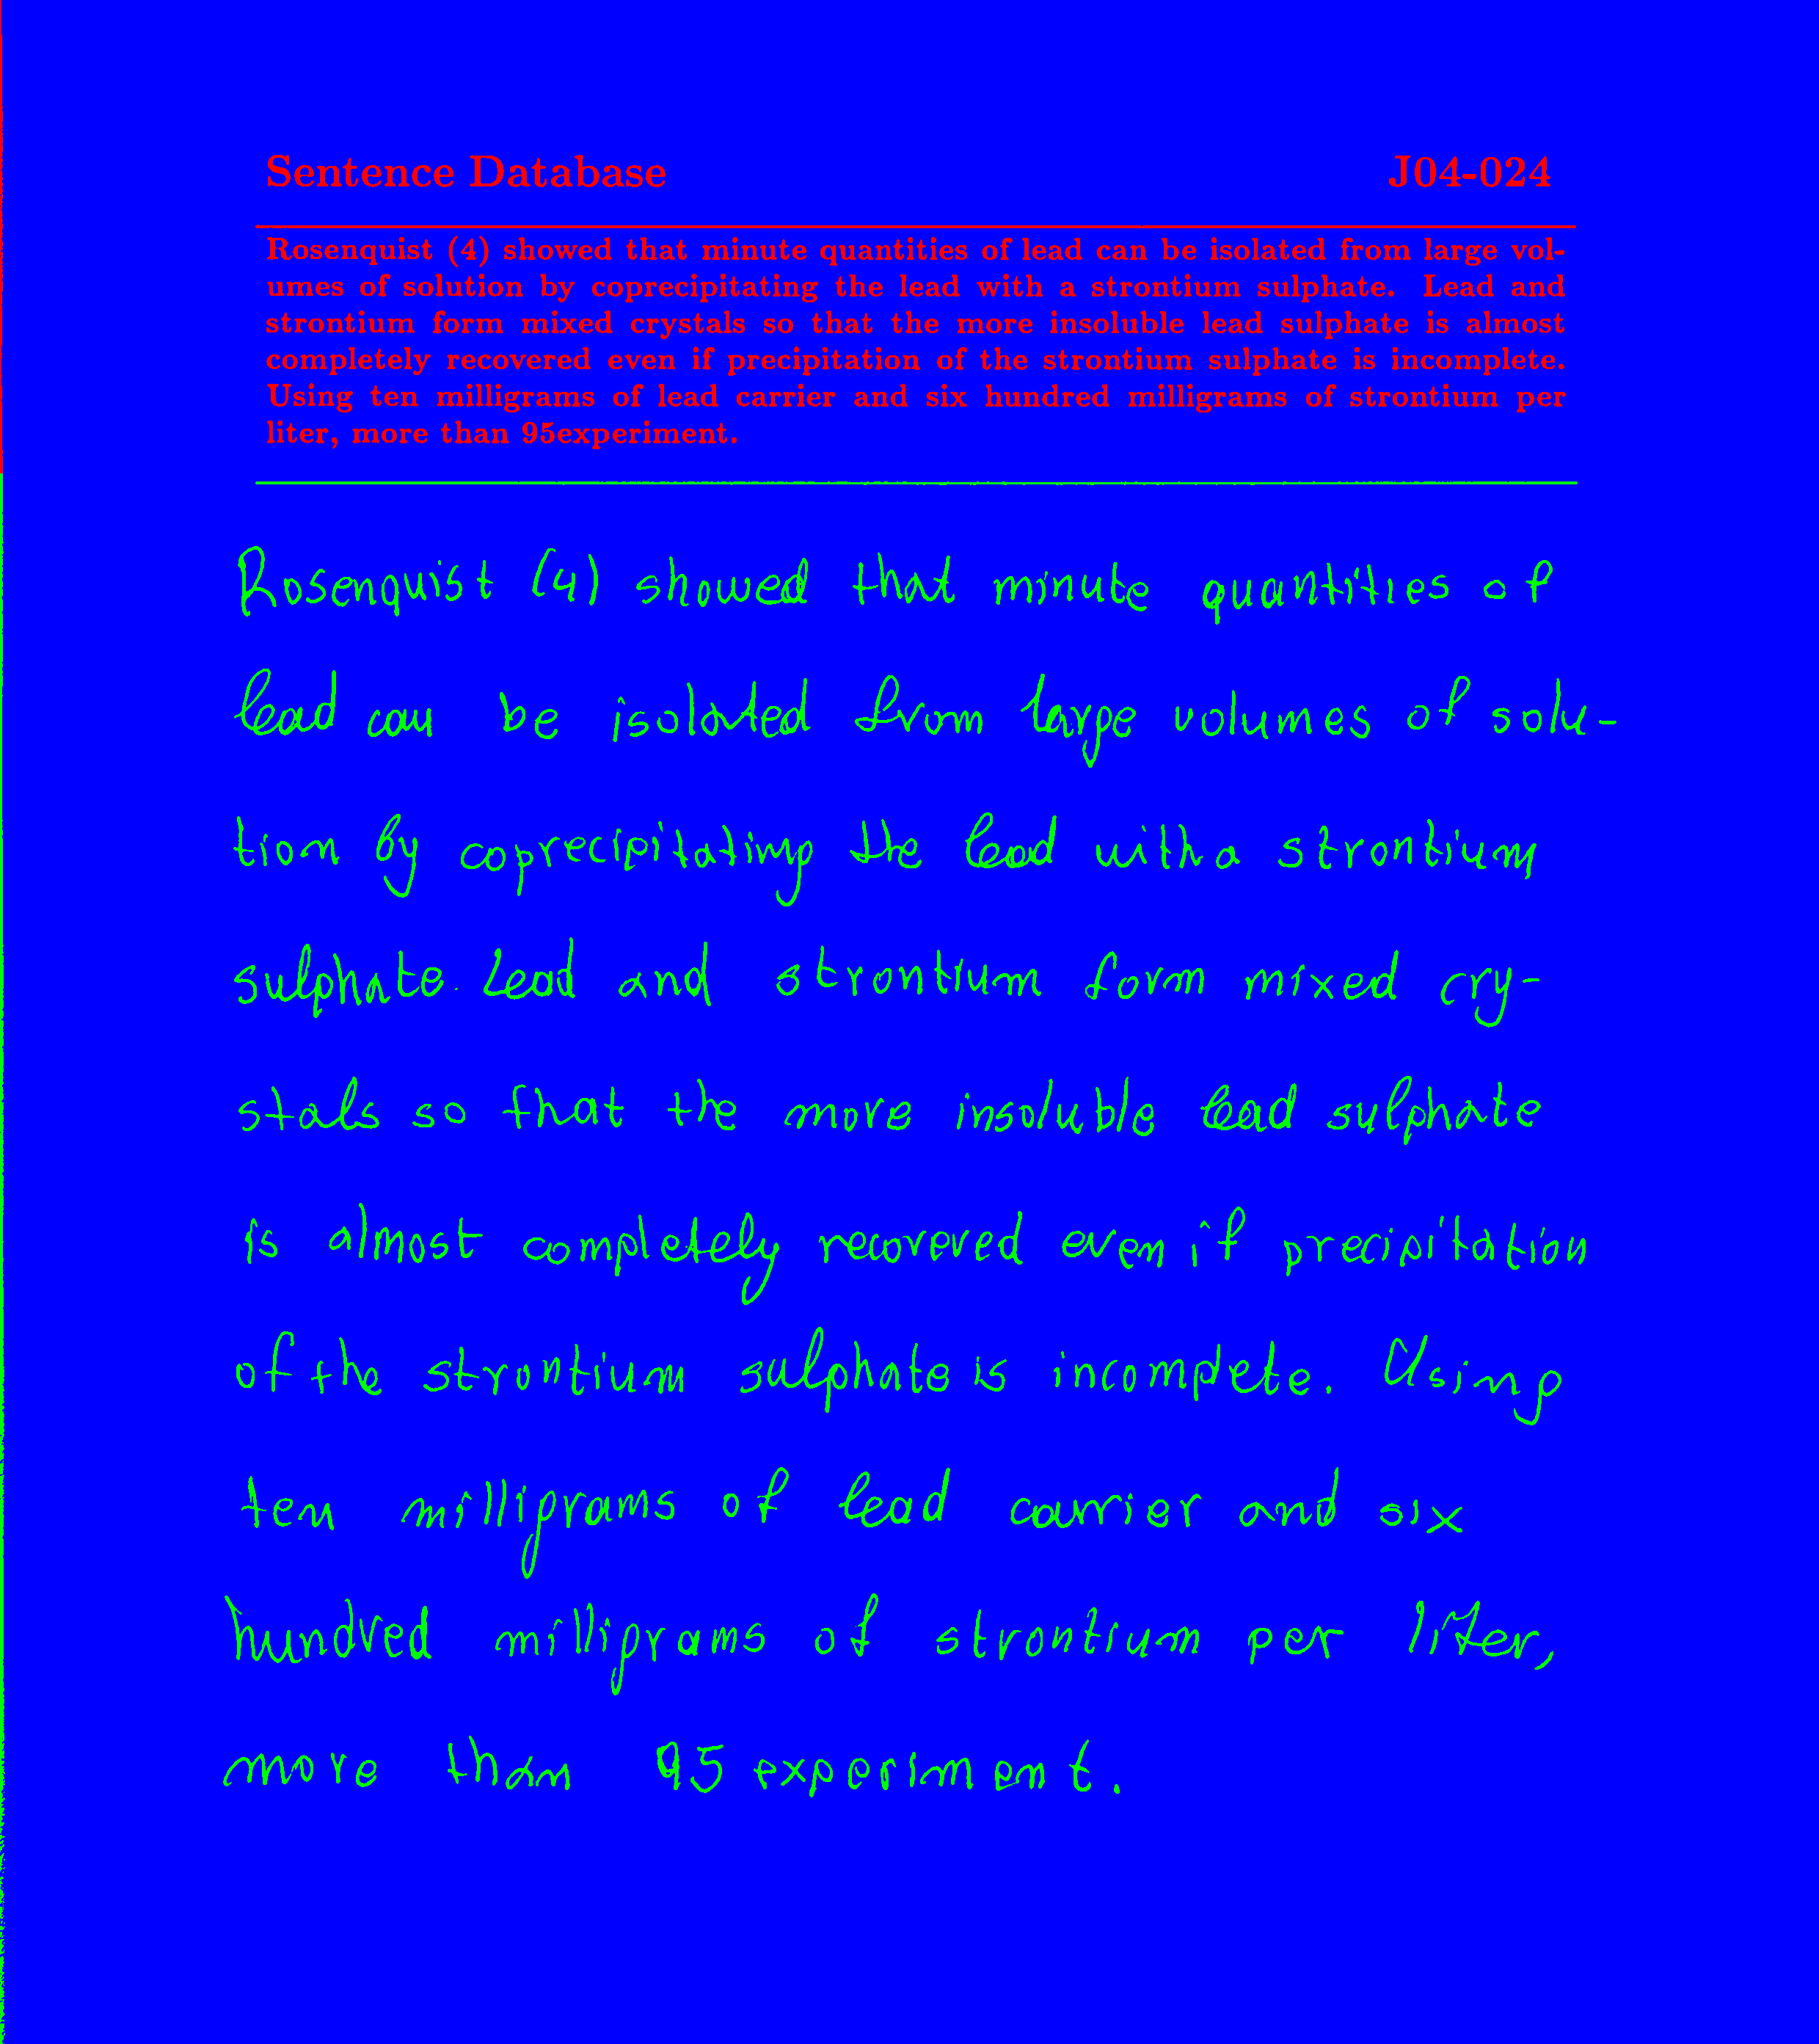 Sentence Database J04-024
Rosenquist (4) showed that minute quantities of lead can be isolated from large vol-
umes of solution by coprecipitating the lead with a strontium sulphate. Lead and
strontium form mixed crystals so that the more insoluble lead sulphate is almost
completely recovered even if precipitation of the strontium sulphate is incomplete.
Using ten milligrams of lead carrier and six hundred milligrams of strontium per
liter, more than 95experiment.
Rosenquist (4) showed that minute quantities of
lead can be isolated from large volumes of solu-
tion by coprecipitating the lead with a strontium
sulphate. Lead and strontium form mixed cry-
stals so that the more insoluble lead sulphate
is almost completely recovered even if precipitation
of the strontium sulphate is incomplete. Using
ten milligrams of lead carrier and six
hundred milligrams of strontium per liter,
more than 95 experiment.